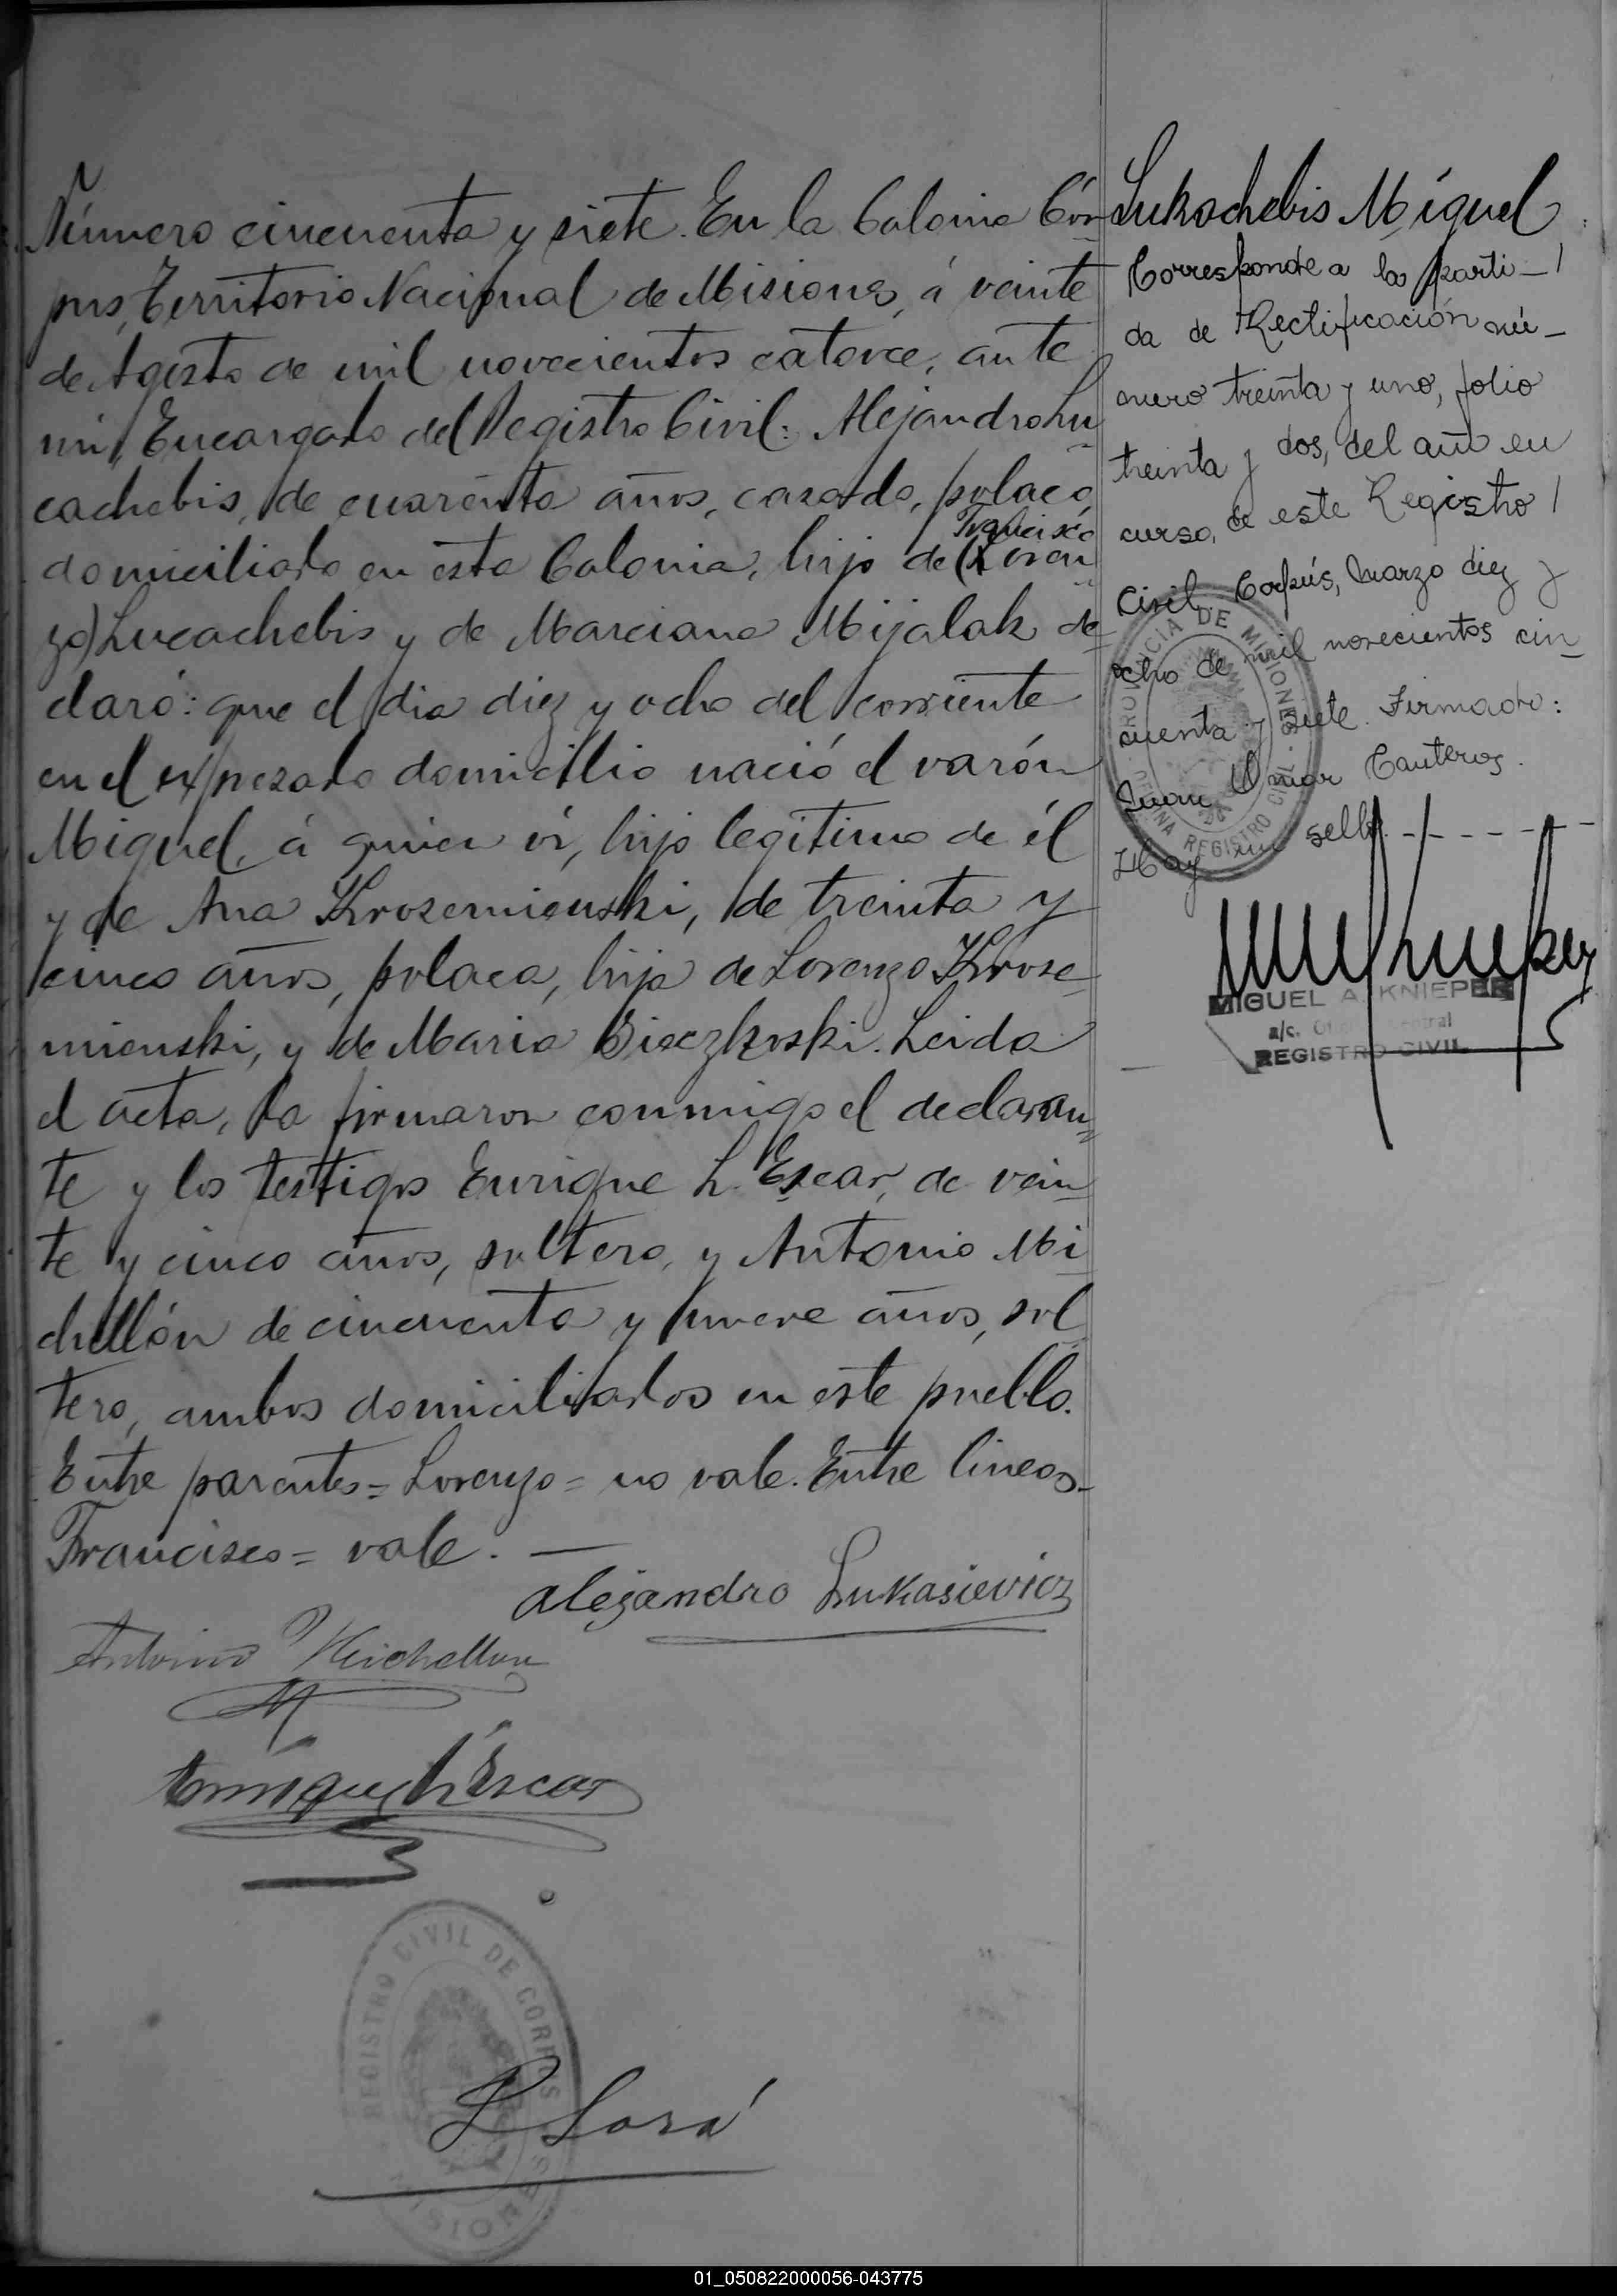 Número cincuenta y siete. En la Colonia Cór
pus, Territorio Nacional de Misiones, á veinte
de Agosto de mil novecientos catorce, ante
mi, Encargado del Registro Civil: Alejandro Lu
cachebis, de cuarenta años, casado, polaco,
Francisco
domiciliado en esta Colonia, hijo de (Loren
zo) Lucachebis y de Marciana Mijalak de
claró: que el dia diez y ocho del corriente
en el expresado domicilio nació el varón
Miguel, á quien vi, hijo legitimo de él
y de Ana Krozemienski, de treinta y
cinco años, polaca, hija de Lorenzo Kroze
mienski, y de Maria Bieczkoski. Leida
el acta, la firmaron conmigo el declaran
te y los testigos Enrique L. Escar, de vein
te y cinco años, soltero, y Antonio Mi
chellón de cincuenta y nueve años, sol
tero, ambos domiciliados en este pueblo.
Entre parentes = Lorenzo = no vale. Entre lineas
Francisco = vale. —
Alejandro Lukasievicz
Antonio Michellon
Enrique L. Escar
REGISTRO CIVIL DE CORPUS
MISIONES
L Losa
Lukachebis Miguel
Corresponde a la parti-
da de Rectificación nú-
mero treinta y uno, folio
treinta y dos, del año en
curso, de este Registro
Civil. Corpús, Marzo diez y
ocho de mil novecientos cin
cuenta y siete. Firmado:
Juan Omar Canteros.
Hay un sello. - - - - -
PROVINCIA DE MISIONES
OFICINA REGISTRO CIVIL
MIGUEL A. KNIEPER
a/c. Oficina Central
REGISTRO CIVIL
01_050822000056-043775